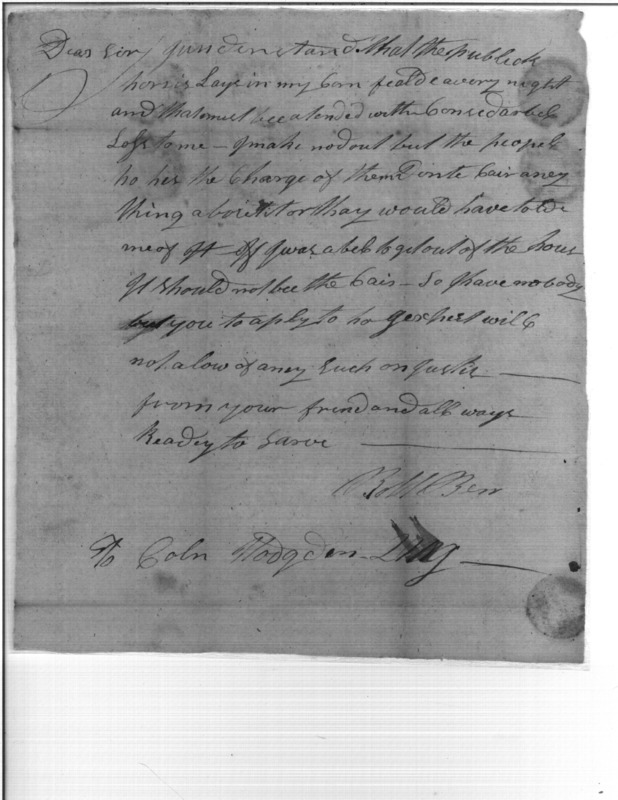 Dear Sir I understand that the publick
horsis Lays in my Corn feald eavery night
and that must bee atended with Consedarbel
Loss to me – I make no dout but the peopel
ho hes the Charge of them Donte Cair aney
thing about it or thay would have told
me of it – If I was abel to get out of the hous
It should not bee the Cais – So I have nobody
but you to aply to ho I expect will
not alow of aney Such onjustis
from your frend and all ways
Readey to Sarve
Robt Berr
To Coln Hodgden